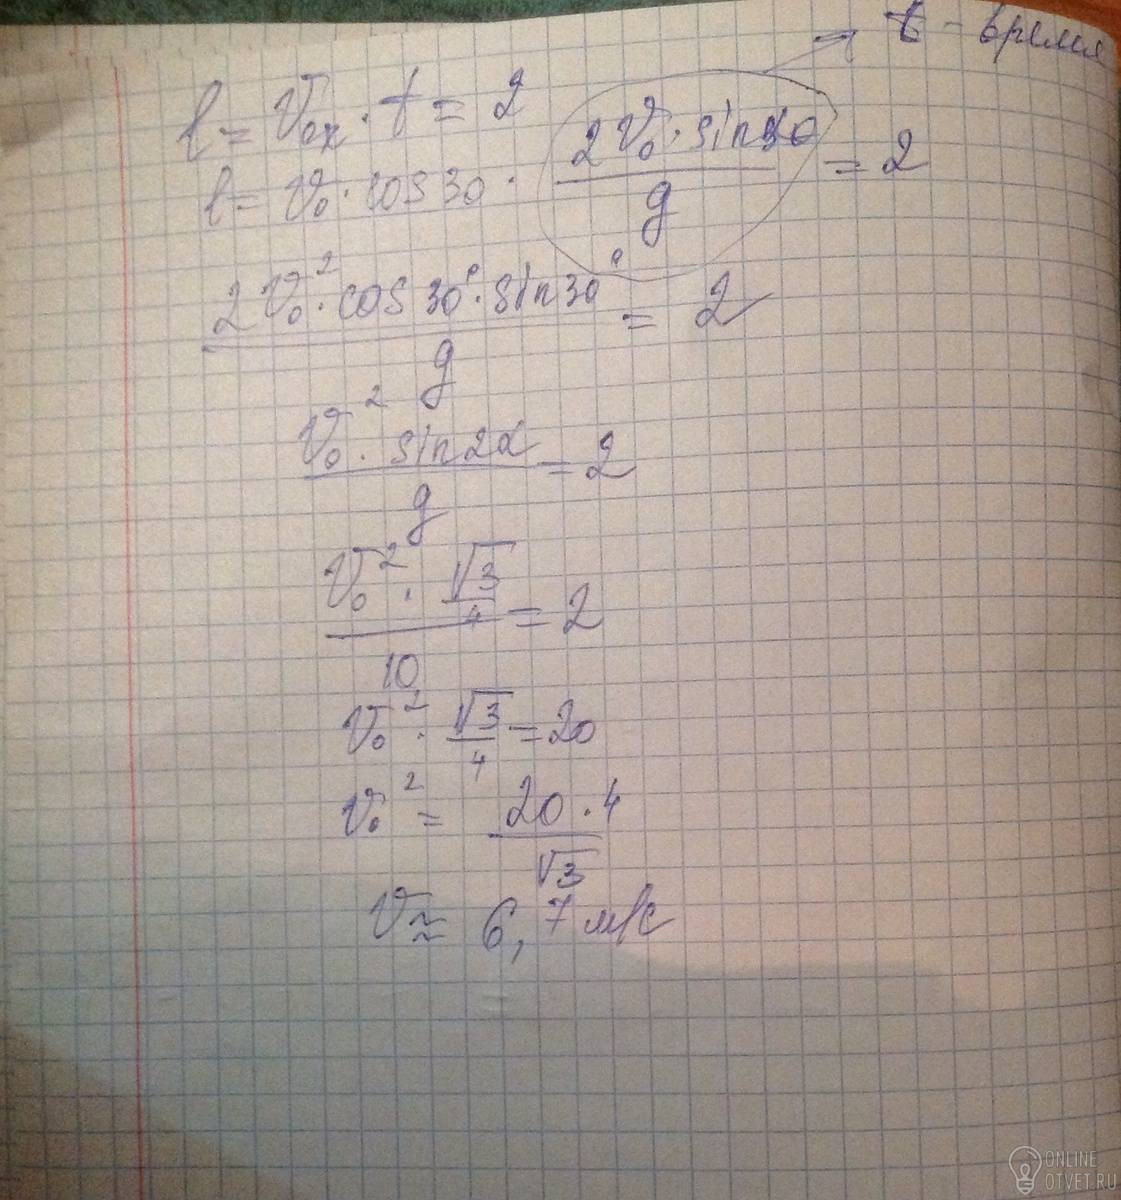 t - время
l = V₀ₓ · t = 2
l = V₀ · cos 30 · 2V₀ · sin30 / g = 2
2V₀² · cos 30° · sin30° / g = 2
V₀² · sin2α / g = 2
V₀² · √3/4 / 10 = 2
V₀² · √3/4 = 20
V₀² = 20 · 4 / √3
V ≈ 6,7 м/с
ONLINE
OTVET.RU